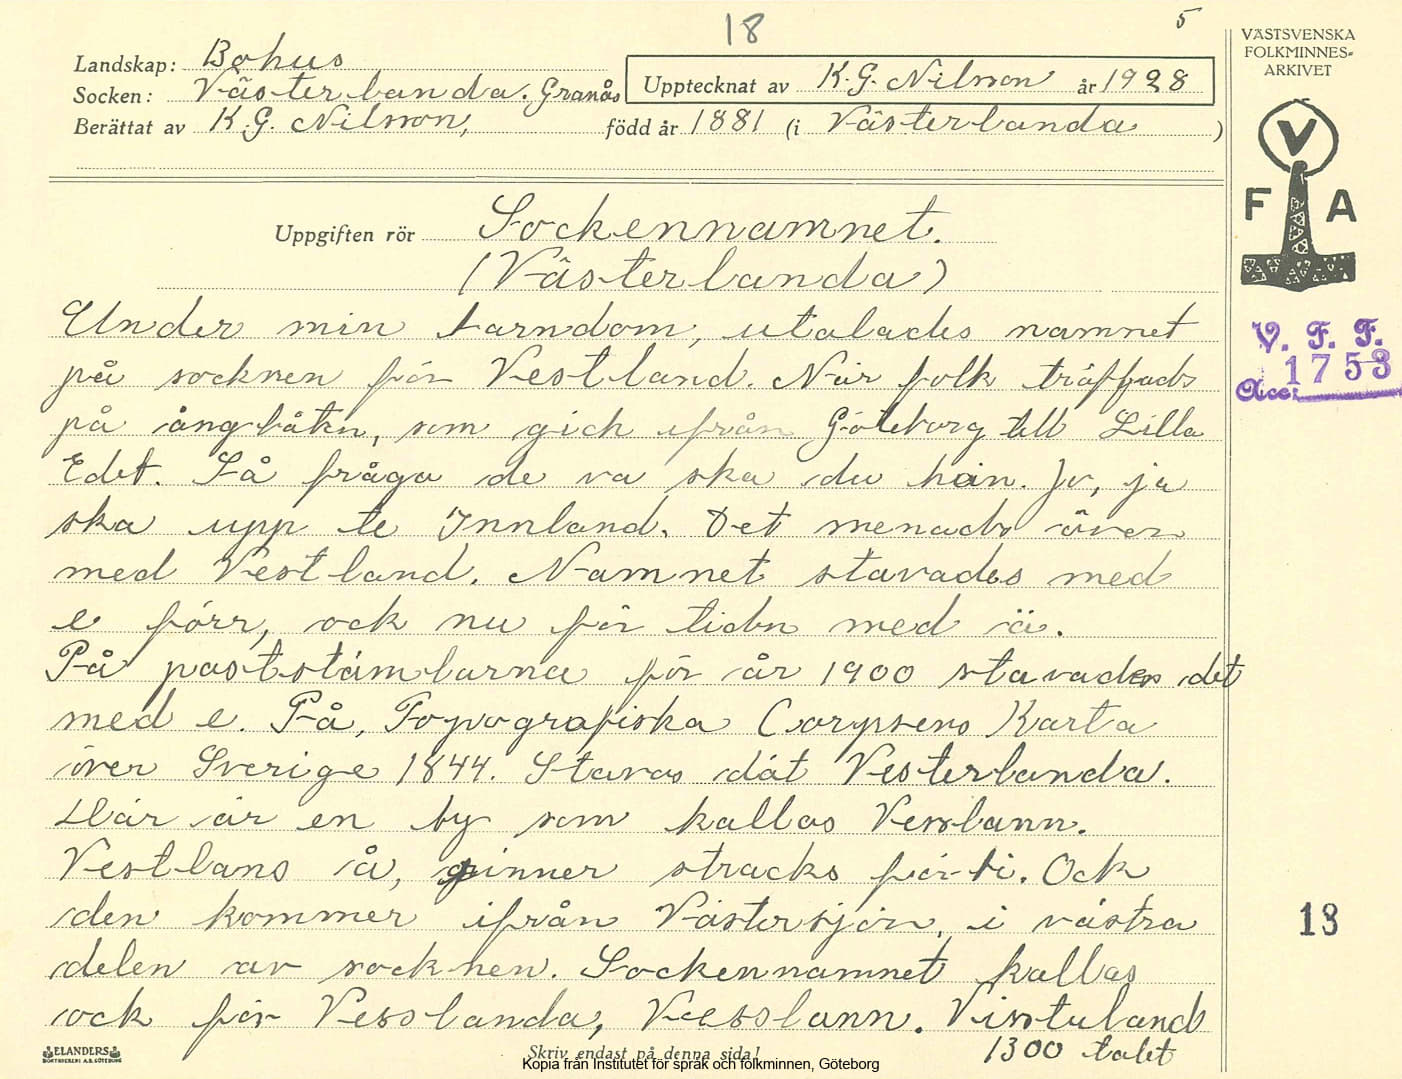 18
5
Landskap: Bohus
Socken: Västerlanda. Granås
Upptecknat av K.G. Nilsson år 1928
Berättat av K.G. Nilsson, född år 1881 (i Västerlanda)
VÄSTSVENSKA
FOLKMINNES-
ARKIVET
V
F A
Uppgiften rör Sockennamnet.
(Västerlanda)
Under min barndom, utalades namnet
på socknen för Vestland. När folk träffads
på ångbåtn, som gick ifrån Göteborg till Lilla
Edet. Så fråga de va ska du hän. Jo, ja
ska upp te Innland. Det menads även
med Vestland. Namnet stavades med
e förr, ock nu för tidn med ä.
På poststämlarna för år 1900 stavades det
med e. På, Topografiska Corpsens Karta
över Sverige 1844. Stavas dät Vesterlanda.
Där är en by som kallas Vesslann.
Vestlans å, rinner stracks för-bi. Ock
den kommer ifrån Västersjön, i västra
delen av socknen. Sockennamnet kallas
ock för Vesslanda, Veesslann. Vistuland
1300 talet
V. F. F.
Acc: 1753
13
ELANDERS
BOKTRYCKERI A.B. GÖTEBORG
Skriv endast på denna sida!
Kopia från Institutet för språk och folkminnen, Göteborg